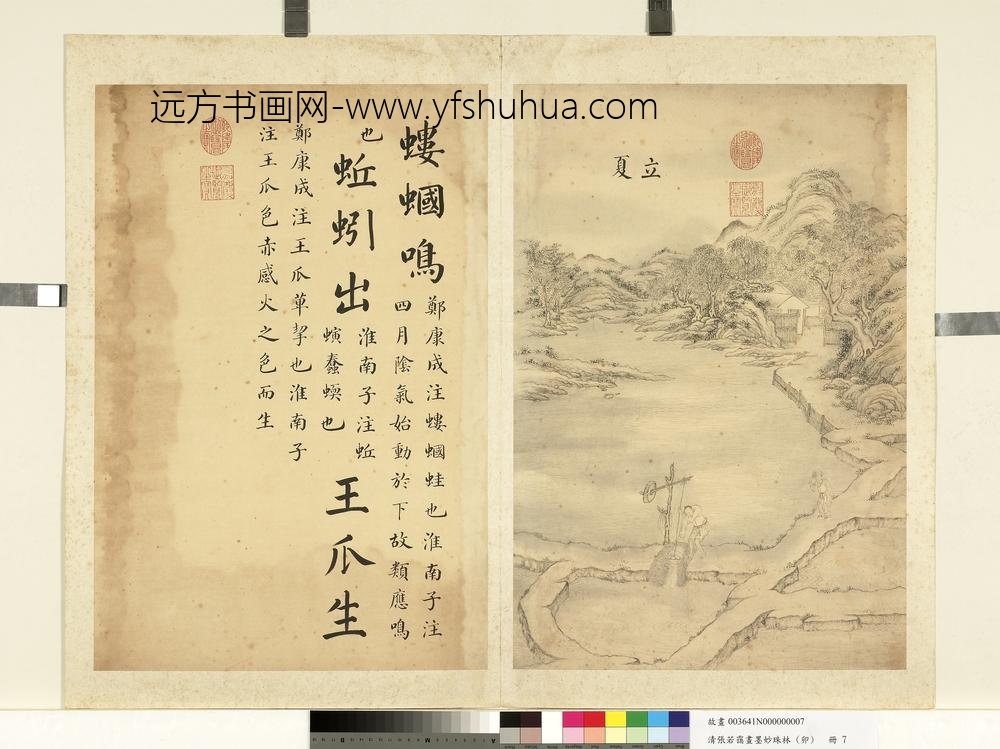 远方书画网-www.yfshuhua.com
立夏
螻蟈鳴鄭康成注螻蟈蛙也淮南子注
四月陰氣始動於下故類應鳴
也蚯蚓出淮南子注蚯
螾蠢蝡也王瓜生
鄭康成注王瓜萆挈也淮南子
注王瓜色赤感火之色而生
故畫 003641N000000007
清張若靄畫墨妙珠林(卯) 冊 7